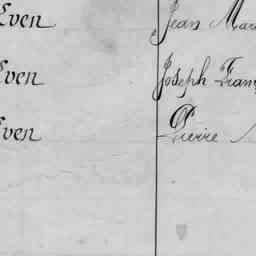 Even Jean Mar
Even Joseph Fran
Even Pierre